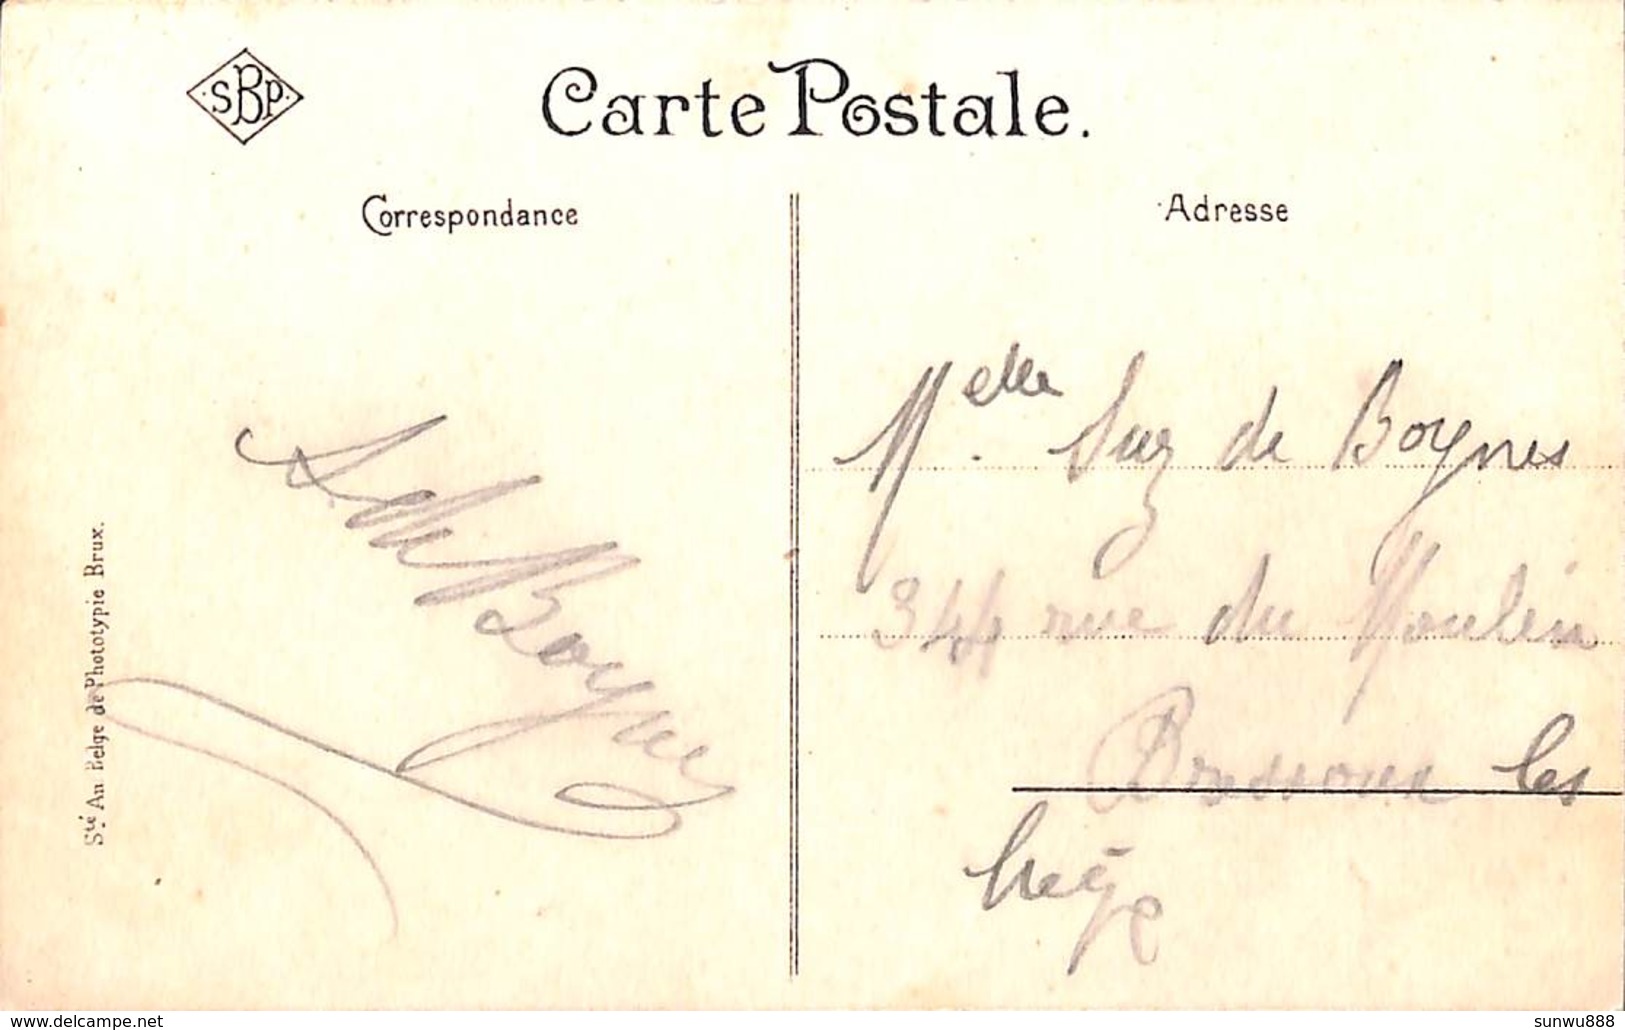 SBP
Carte Postale.
Correspondance
Adresse
Melle Suz de Boynes
344 rue du Moulin
Bressoux les
Liège
de Boynes
Sté An Belge de Phototypie Brux.
www.delcampe.net
sunwu888